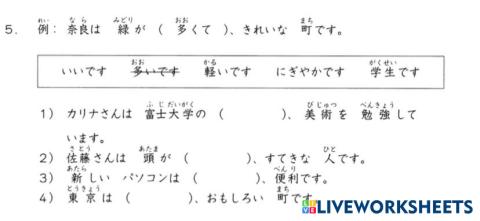 5. 例: 奈良は 緑が ( 多くて )、きれいな 町です。
いいです 多いです 軽いです にぎやかです 学生です
1) カリナさんは 富士大学の ( )、美術を 勉強して
います。
2) 佐藤さんは 頭が ( )、すてきな 人です。
3) 新しい パソコンは ( )、便利です。
4) 東京は ( )、おもしろい 町です。
LIVEWORKSHEETS